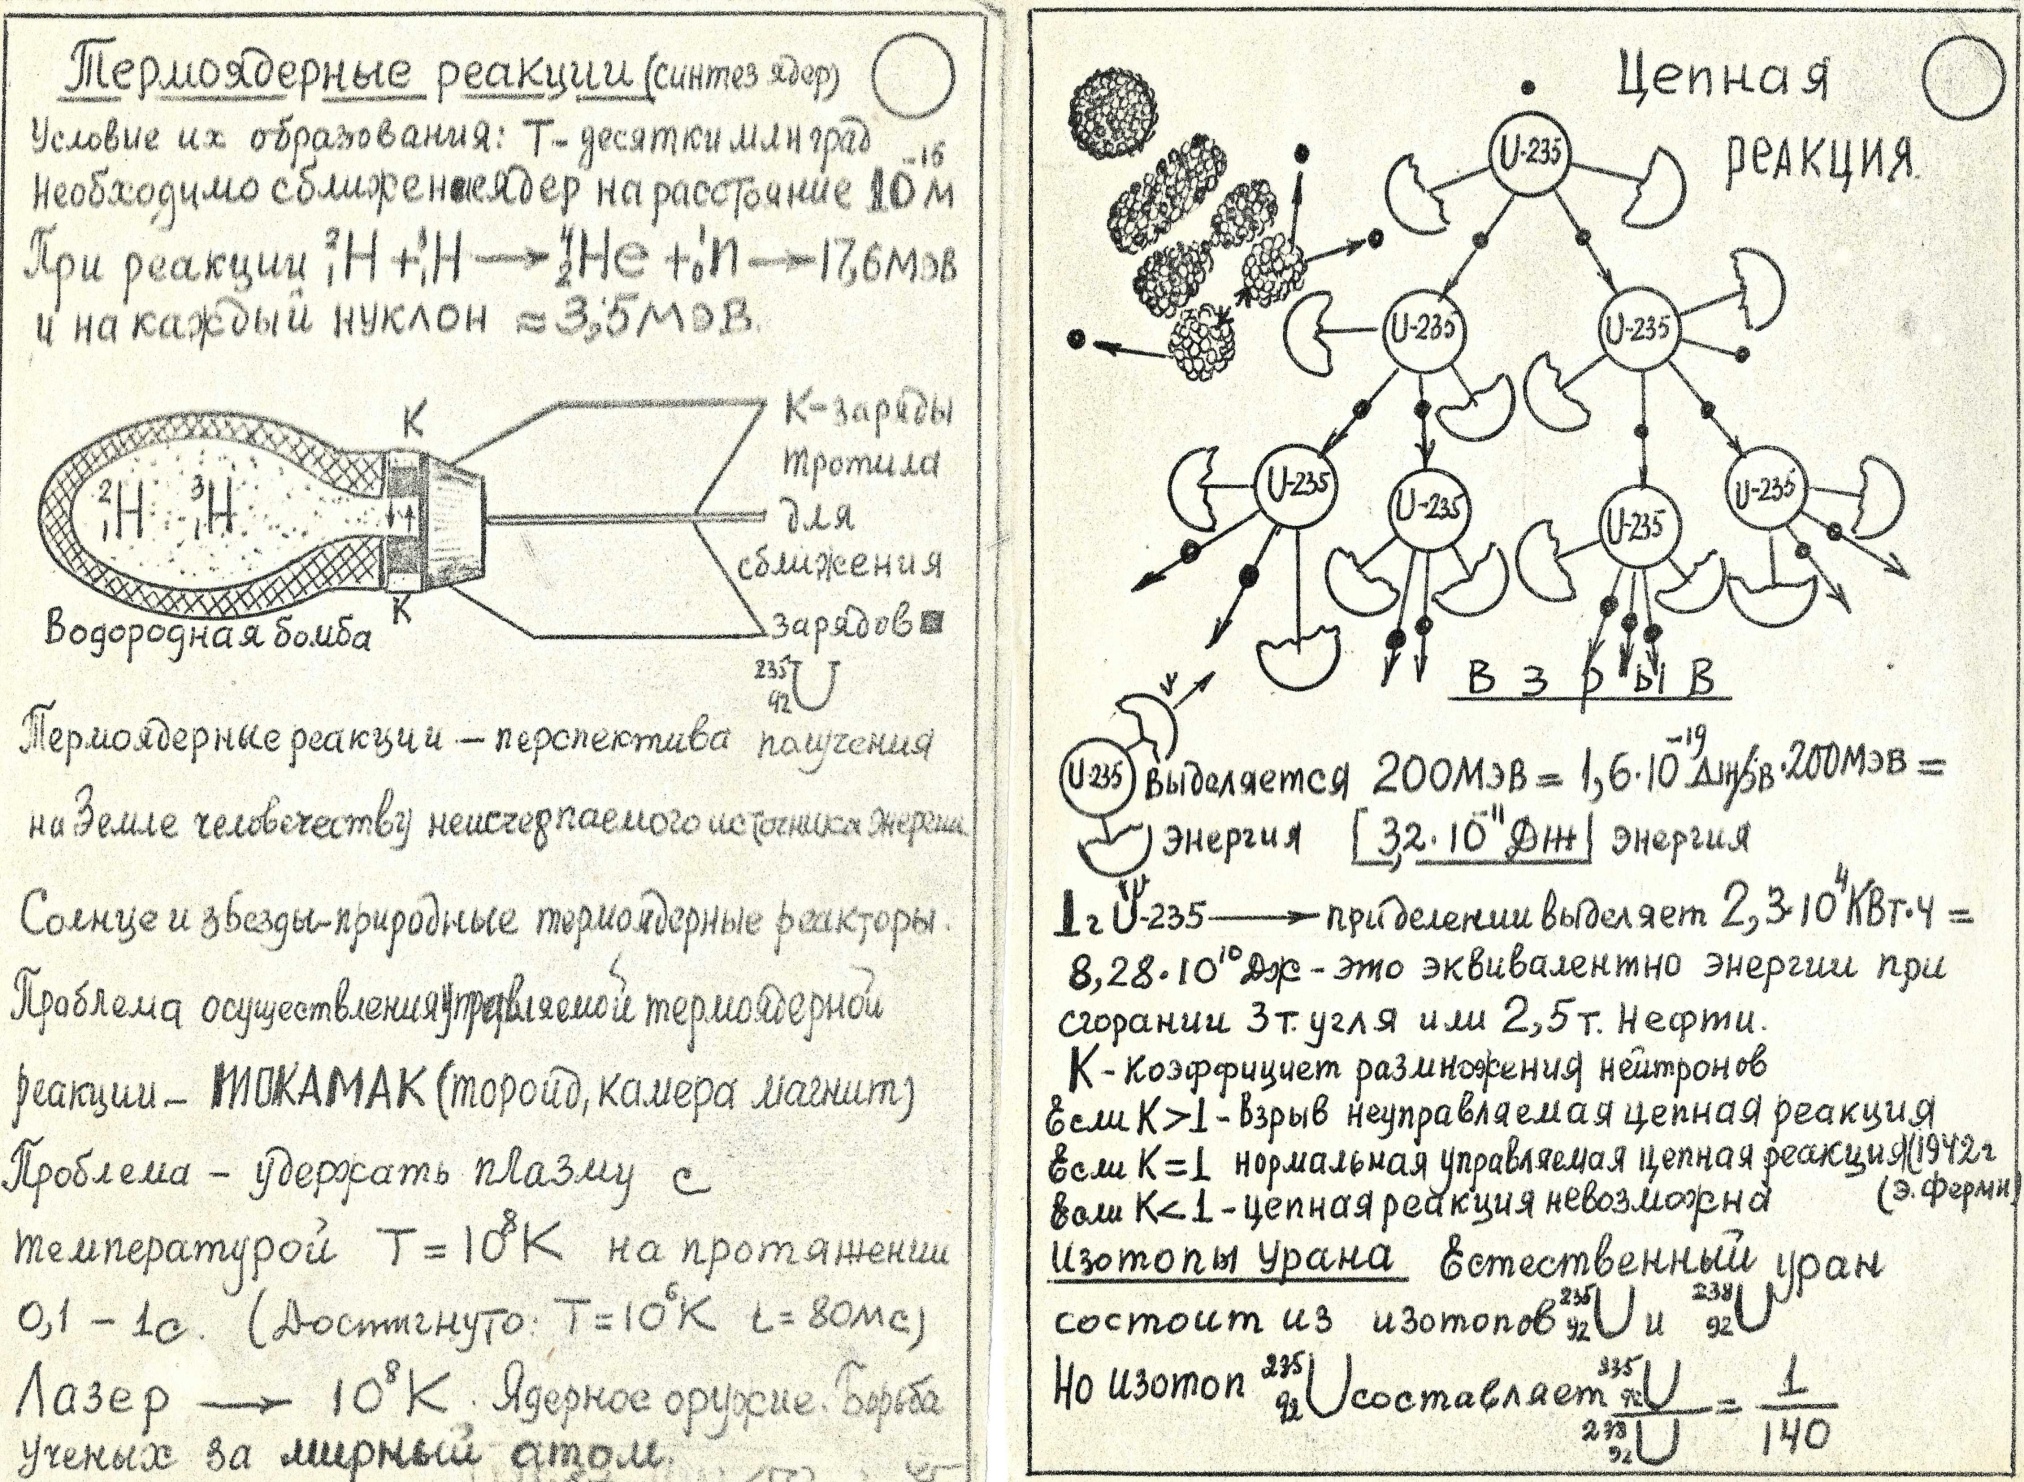 Термоядерные реакции (синтез ядер)
Условие их образования: Т- десятки млн град
Необходимо сближение ядер на расстояние 10⁻¹⁵ м
При реакции ²₁H + ³₁H → ⁴₂He + ¹₀n → 17,6 МэВ
и на каждый нуклон ≈ 3,5 МэВ.
К
К-заряды
тротила
²₁H ³₁H
для
сближения
К
зарядов ■
Водородная бомба
²³⁵₉₂U
Термоядерные реакции – перспектива получения
на Земле человечеству неисчерпаемого источника энергии
Солнце и звезды-природные термоядерные реакторы.
Проблема осуществления управляемой термоядерной
реакции – ТОКАМАК (тороид, камера магнит)
Проблема – удержать плазму с
температурой T = 10⁸K на протяжении
0,1 – 1с. (Достигнуто: T = 10⁶K t = 80мс)
Лазер → 10⁸K. Ядерное оружие. Борьба
ученых за мирный атом.
Цепная
реакция.
U-235
U-235 U-235
U-235 U-235 U-235 U-235
Взрыв
U-235 Выделяется 200МэВ = 1,6·10⁻¹⁹ Дж/эв·200МэВ =
энергия [3,2·10⁻¹¹ Дж] энергия
1г U-235 → при делении выделяет 2,3·10⁴ КВт·ч =
8,28·10¹⁰ Дж - это эквивалентно энергии при
сгорании 3т. угля или 2,5т. Нефти.
К - коэффициет размножения нейтронов
Если К>1 - взрыв неуправляемая цепная реакция
Если К=1 нормальная управляемая цепная реакция (1942г
Если К<1 - цепная реакция невозможна (Э.Ферми)
Изотопы урана Естественный уран
состоит из изотопов ²³⁵₉₂U и ²³⁸₉₂U
Но изотоп ²³⁵₉₂U составляет ²³⁵₉₂U / ²³⁸₉₂U = 1/140